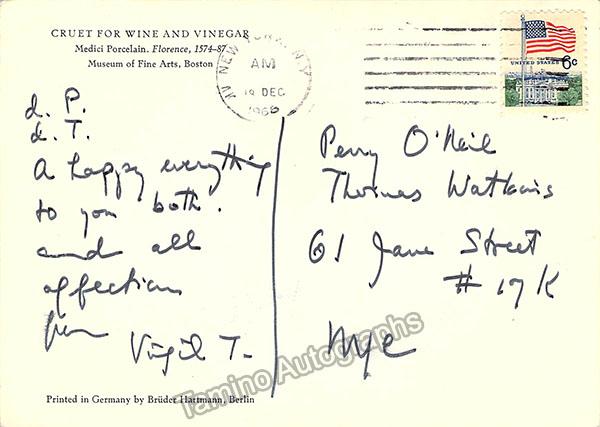 CRUET FOR WINE AND VINEGAR
Medici Porcelain. Florence, 1574-87
Museum of Fine Arts, Boston
NEW YORK, N.Y.
AM
19 DEC
1968
UNITED STATES 6c
d. P.
d. T.
A happy everything
to you both.
and all
affections
from
Virgil T.
Perry O'Neil
Thomas Watkins
61 Jane Street
# 17 K
Nyc
Tamino Autographs
Printed in Germany by Brüder Hartmann, Berlin